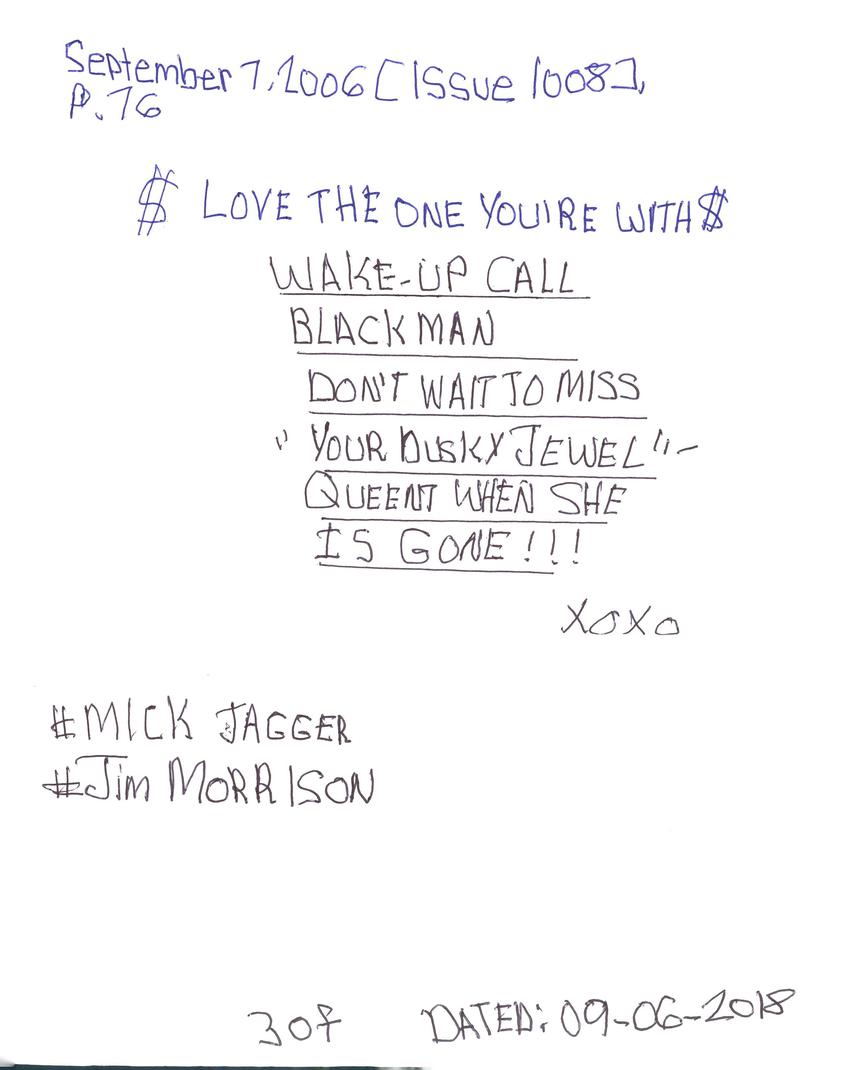 September 7, 2006 [Issue 1008],
P. 76
$ LOVE THE ONE YOU'RE WITH $
WAKE-UP CALL
BLACK MAN
DON'T WAIT TO MISS
" YOUR DUSKY JEWEL" -
QUEENT WHEN SHE
IS GONE!!!
XOXO
#MICK JAGGER
#Jim MORRISON
3 of
DATED: 09-06-2018